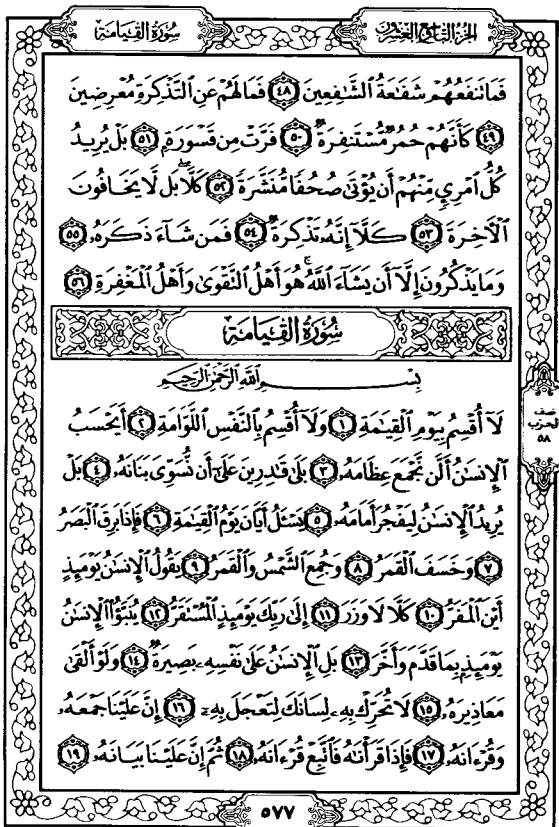 سُورَةُ القِيَامَةِ
الجزء التاسع والعشرون
فَمَا تَنفَعُهُمْ شَفَٰعَةُ ٱلشَّٰفِعِينَ ٤٨ فَمَا لَهُمْ عَنِ ٱلتَّذْكِرَةِ مُعْرِضِينَ
٤٩ كَأَنَّهُمْ حُمُرٌ مُّسْتَنفِرَةٌ ٥٠ فَرَّتْ مِن قَسْوَرَةٍ ٥١ بَلْ يُرِيدُ
كُلُّ ٱمْرِئٍ مِّنْهُمْ أَن يُؤْتَىٰ صُحُفًا مُّنَشَّرَةً ٥٢ كَلَّا بَل لَّا يَخَافُونَ
ٱلْءَاخِرَةَ ٥٣ كَلَّآ إِنَّهُۥ تَذْكِرَةٌ ٥٤ فَمَن شَآءَ ذَكَرَهُۥ ٥٥
وَمَا يَذْكُرُونَ إِلَّآ أَن يَشَآءَ ٱللَّهُ هُوَ أَهْلُ ٱلتَّقْوَىٰ وَأَهْلُ ٱلْمَغْفِرَةِ ٥٦
سُورَةُ القِيَامَةِ
بِسْمِ ٱللَّهِ ٱلرَّحْمَٰنِ ٱلرَّحِيمِ
لَآ أُقْسِمُ بِيَوْمِ ٱلْقِيَٰمَةِ ١ وَلَآ أُقْسِمُ بِٱلنَّفْسِ ٱللَّوَّامَةِ ٢ أَيَحْسَبُ
ٱلْإِنسَٰنُ أَلَّن نَّجْمَعَ عِظَامَهُۥ ٣ بَلَىٰ قَٰدِرِينَ عَلَىٰٓ أَن نُّسَوِّىَ بَنَانَهُۥ ٤ بَلْ
يُرِيدُ ٱلْإِنسَٰنُ لِيَفْجُرَ أَمَامَهُۥ ٥ يَسْـَٔلُ أَيَّانَ يَوْمُ ٱلْقِيَٰمَةِ ٦ فَإِذَا بَرِقَ ٱلْبَصَرُ
٧ وَخَسَفَ ٱلْقَمَرُ ٨ وَجُمِعَ ٱلشَّمْسُ وَٱلْقَمَرُ ٩ يَقُولُ ٱلْإِنسَٰنُ يَوْمَئِذٍ
أَيْنَ ٱلْمَفَرُّ ١٠ كَلَّا لَا وَزَرَ ١١ إِلَىٰ رَبِّكَ يَوْمَئِذٍ ٱلْمُسْتَقَرُّ ١٢ يُنَبَّؤُا۟ ٱلْإِنسَٰنُ
يَوْمَئِذٍۭ بِمَا قَدَّمَ وَأَخَّرَ ١٣ بَلِ ٱلْإِنسَٰنُ عَلَىٰ نَفْسِهِۦ بَصِيرَةٌ ١٤ وَلَوْ أَلْقَىٰ
مَعَاذِيرَهُۥ ١٥ لَا تُحَرِّكْ بِهِۦ لِسَانَكَ لِتَعْجَلَ بِهِۦٓ ١٦ إِنَّ عَلَيْنَا جَمْعَهُۥ
وَقُرْءَانَهُۥ ١٧ فَإِذَا قَرَأْنَٰهُ فَٱتَّبِعْ قُرْءَانَهُۥ ١٨ ثُمَّ إِنَّ عَلَيْنَا بَيَانَهُۥ ١٩
نصف
الحزب
٥٨
٥٧٧